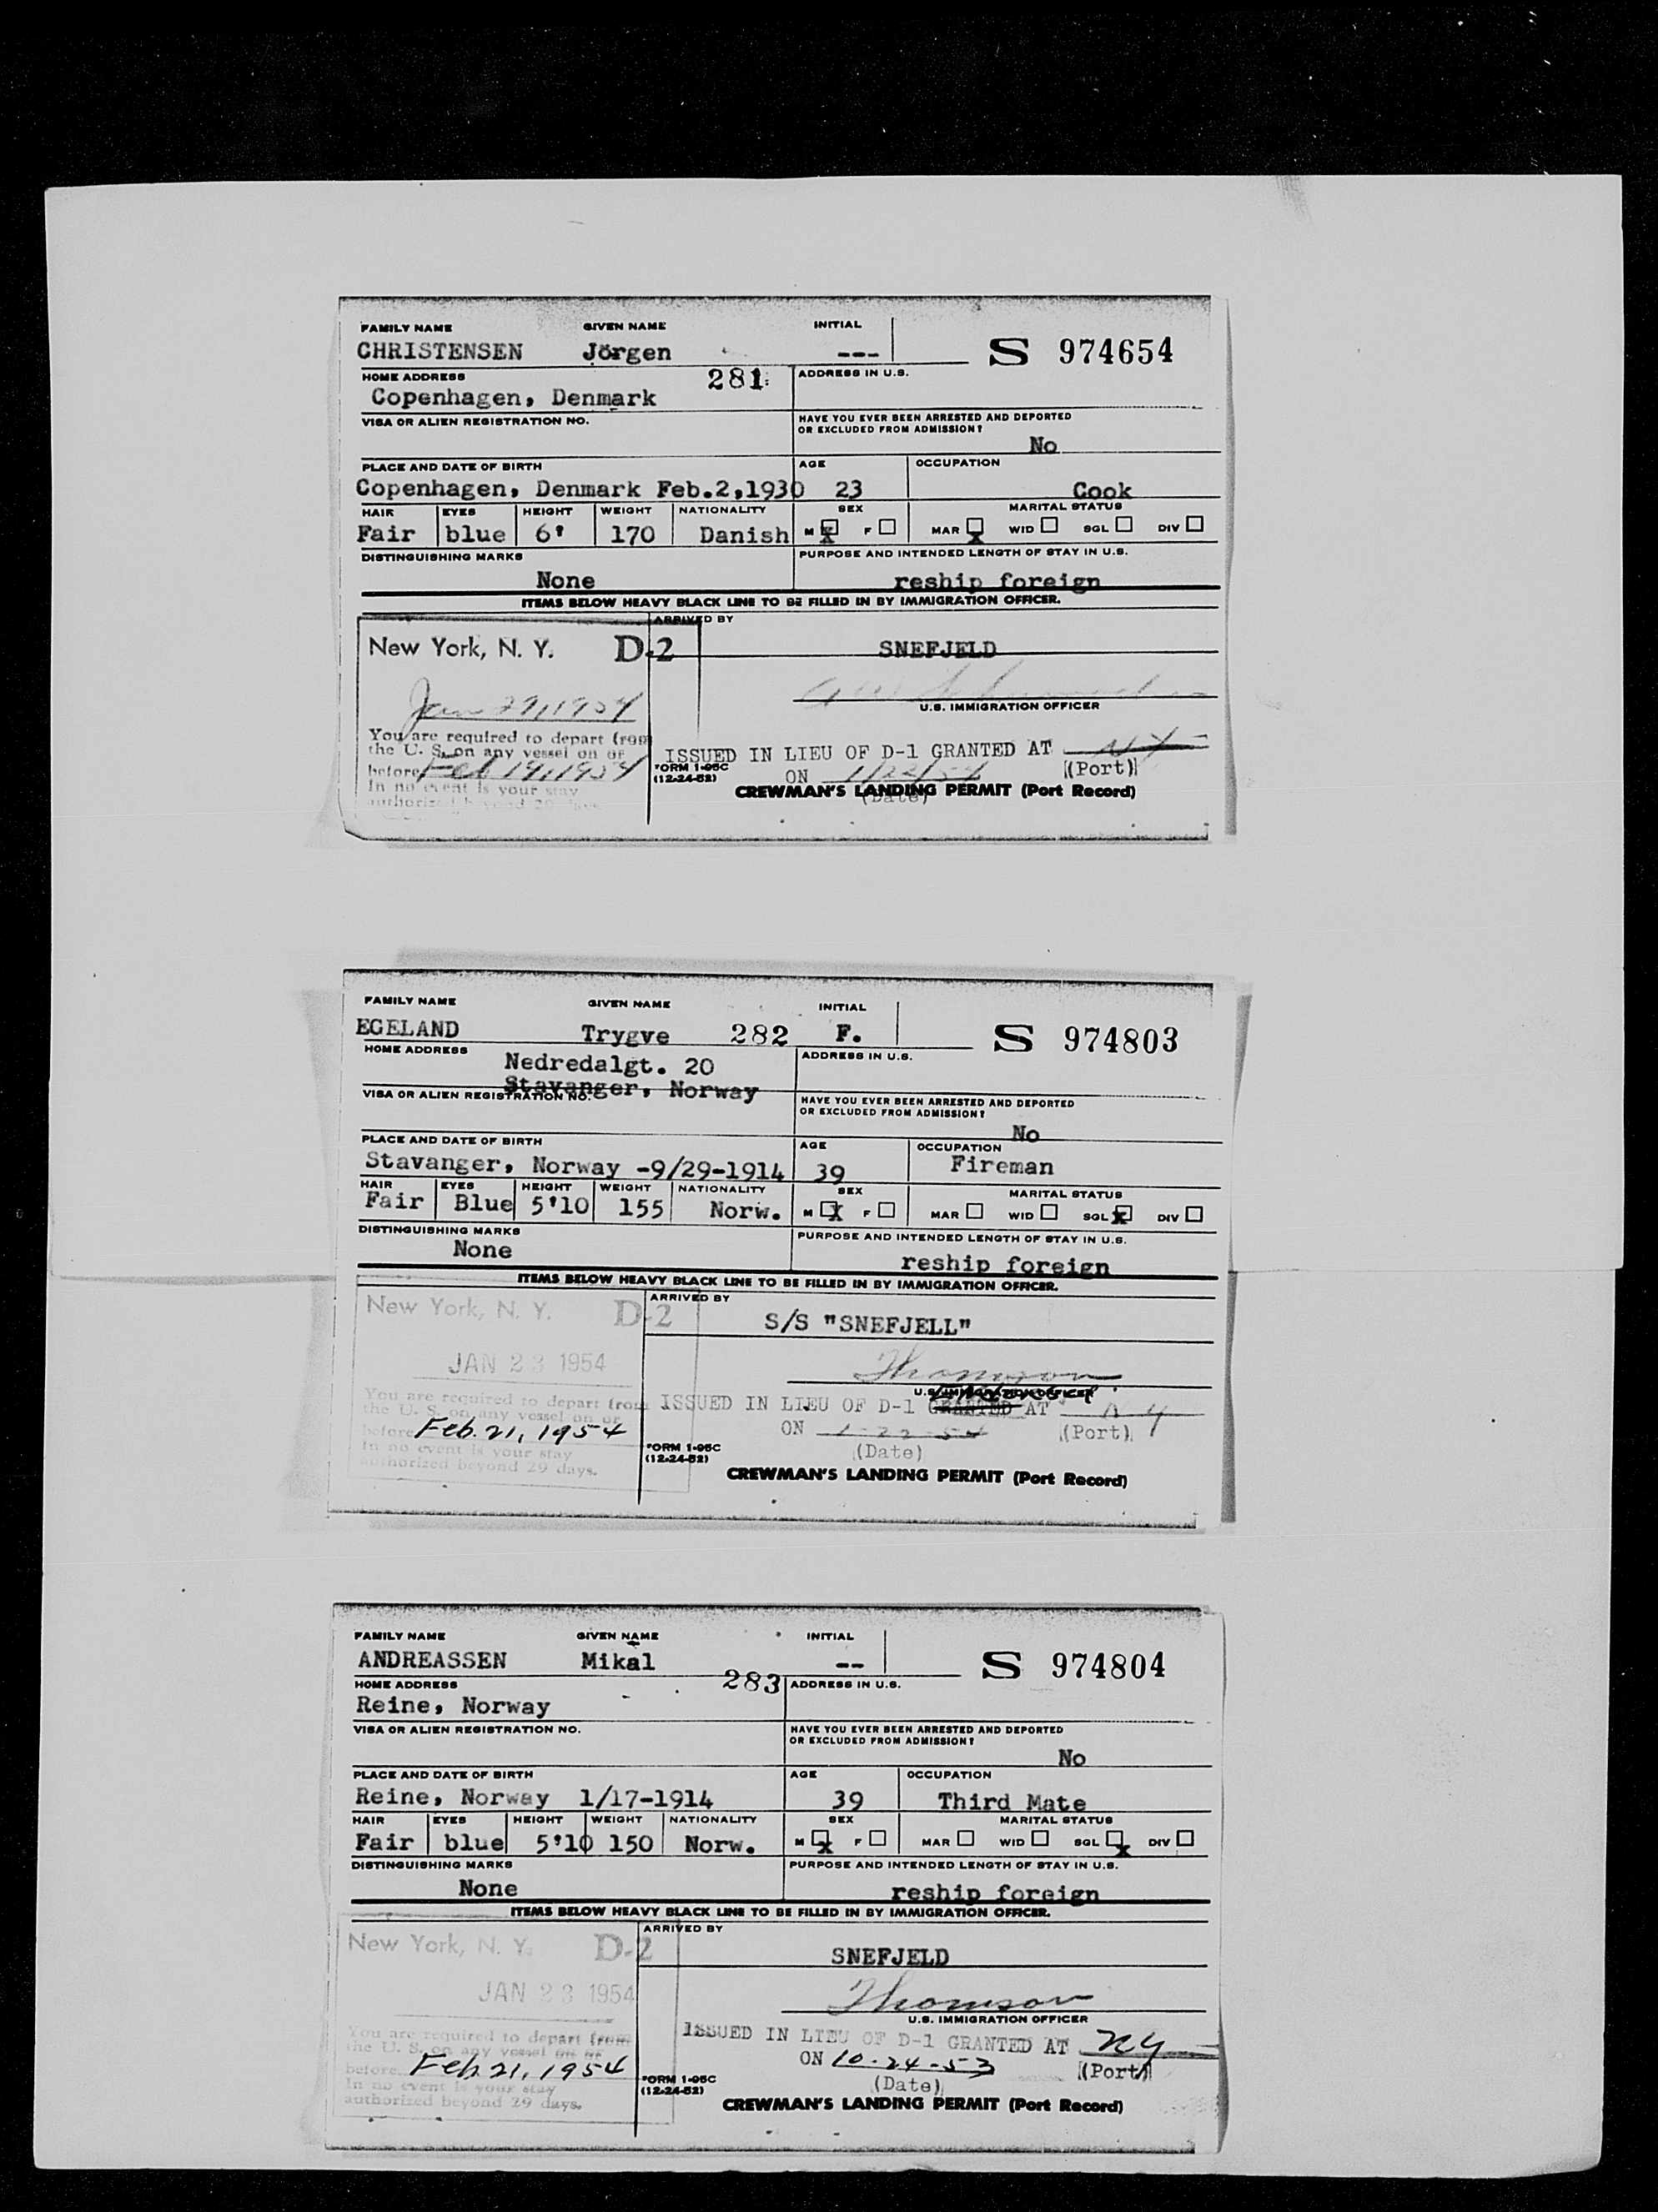 FAMILY NAME GIVEN NAME INITIAL
CHRISTENSEN Jörgen --- S 974654
HOME ADDRESS 281 ADDRESS IN U.S.
Copenhagen, Denmark
VISA OR ALIEN REGISTRATION NO. HAVE YOU EVER BEEN ARRESTED AND DEPORTED
OR EXCLUDED FROM ADMISSION?
No
PLACE AND DATE OF BIRTH AGE OCCUPATION
Copenhagen, Denmark Feb.2,1930 23 Cook
HAIR EYES HEIGHT WEIGHT NATIONALITY SEX MARITAL STATUS
Fair blue 6' 170 Danish M X F MAR X WID SGL DIV
DISTINGUISHING MARKS PURPOSE AND INTENDED LENGTH OF STAY IN U.S.
None reship foreign
ITEMS BELOW HEAVY BLACK LINE TO BE FILLED IN BY IMMIGRATION OFFICER.
ARRIVED BY
New York, N. Y. D-2 SNEFJELD
Jan 29, 1954
U.S. IMMIGRATION OFFICER
You are required to depart from
the U. S. on any vessel on or
before Feb 19, 1954
In no event is your stay
authorized beyond 29 days.
ISSUED IN LIEU OF D-1 GRANTED AT NY
(Port)
FORM I-95C
(12-24-52)
ON 1/22/54
(Date)
CREWMAN'S LANDING PERMIT (Port Record)
FAMILY NAME GIVEN NAME INITIAL
EGELAND Trygve 282 F. S 974803
HOME ADDRESS ADDRESS IN U.S.
Nedredalgt. 20
Stavanger, Norway
VISA OR ALIEN REGISTRATION NO. HAVE YOU EVER BEEN ARRESTED AND DEPORTED
OR EXCLUDED FROM ADMISSION?
No
PLACE AND DATE OF BIRTH AGE OCCUPATION
Stavanger, Norway -9/29-1914 39 Fireman
HAIR EYES HEIGHT WEIGHT NATIONALITY SEX MARITAL STATUS
Fair Blue 5'10 155 Norw. M X F MAR WID SGL X DIV
DISTINGUISHING MARKS PURPOSE AND INTENDED LENGTH OF STAY IN U.S.
None reship foreign
ITEMS BELOW HEAVY BLACK LINE TO BE FILLED IN BY IMMIGRATION OFFICER.
ARRIVED BY
New York, N. Y. D-2 S/S "SNEFJELL"
JAN 23 1954
Thomson
U.S. IMMIGRATION OFFICER
You are required to depart from
the U. S. on any vessel on or
before Feb. 21, 1954
In no event is your stay
authorized beyond 29 days.
ISSUED IN LIEU OF D-1 GRANTED AT NY
ON 1-22-54 (Port)
(Date)
FORM I-95C
(12-24-52)
CREWMAN'S LANDING PERMIT (Port Record)
FAMILY NAME GIVEN NAME INITIAL
ANDREASSEN Mikal -- S 974804
HOME ADDRESS 283 ADDRESS IN U.S.
Reine, Norway
VISA OR ALIEN REGISTRATION NO. HAVE YOU EVER BEEN ARRESTED AND DEPORTED
OR EXCLUDED FROM ADMISSION?
No
PLACE AND DATE OF BIRTH AGE OCCUPATION
Reine, Norway 1/17-1914 39 Third Mate
HAIR EYES HEIGHT WEIGHT NATIONALITY SEX MARITAL STATUS
Fair blue 5'10 150 Norw. M X F MAR WID SGL X DIV
DISTINGUISHING MARKS PURPOSE AND INTENDED LENGTH OF STAY IN U.S.
None reship foreign
ITEMS BELOW HEAVY BLACK LINE TO BE FILLED IN BY IMMIGRATION OFFICER.
ARRIVED BY
New York, N. Y. D-2 SNEFJELD
JAN 23 1954
Thomson
U.S. IMMIGRATION OFFICER
You are required to depart from
the U. S. on any vessel on or
before Feb. 21, 1954
In no event is your stay
authorized beyond 29 days.
ISSUED IN LIEU OF D-1 GRANTED AT NY
ON 10-24-53 (Port)
(Date)
FORM I-95C
(12-24-52)
CREWMAN'S LANDING PERMIT (Port Record)